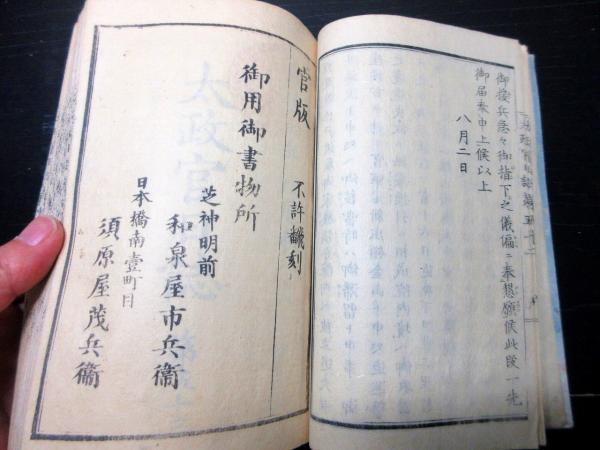 御援兵急々御指下之儀偏ニ奉懇願候此段一先
御届奉申上候以上
八月二日
官版
不許翻刻
御用御書物所
芝神明前
和泉屋市兵衞
日本橋南壹町目
須原屋茂兵衞